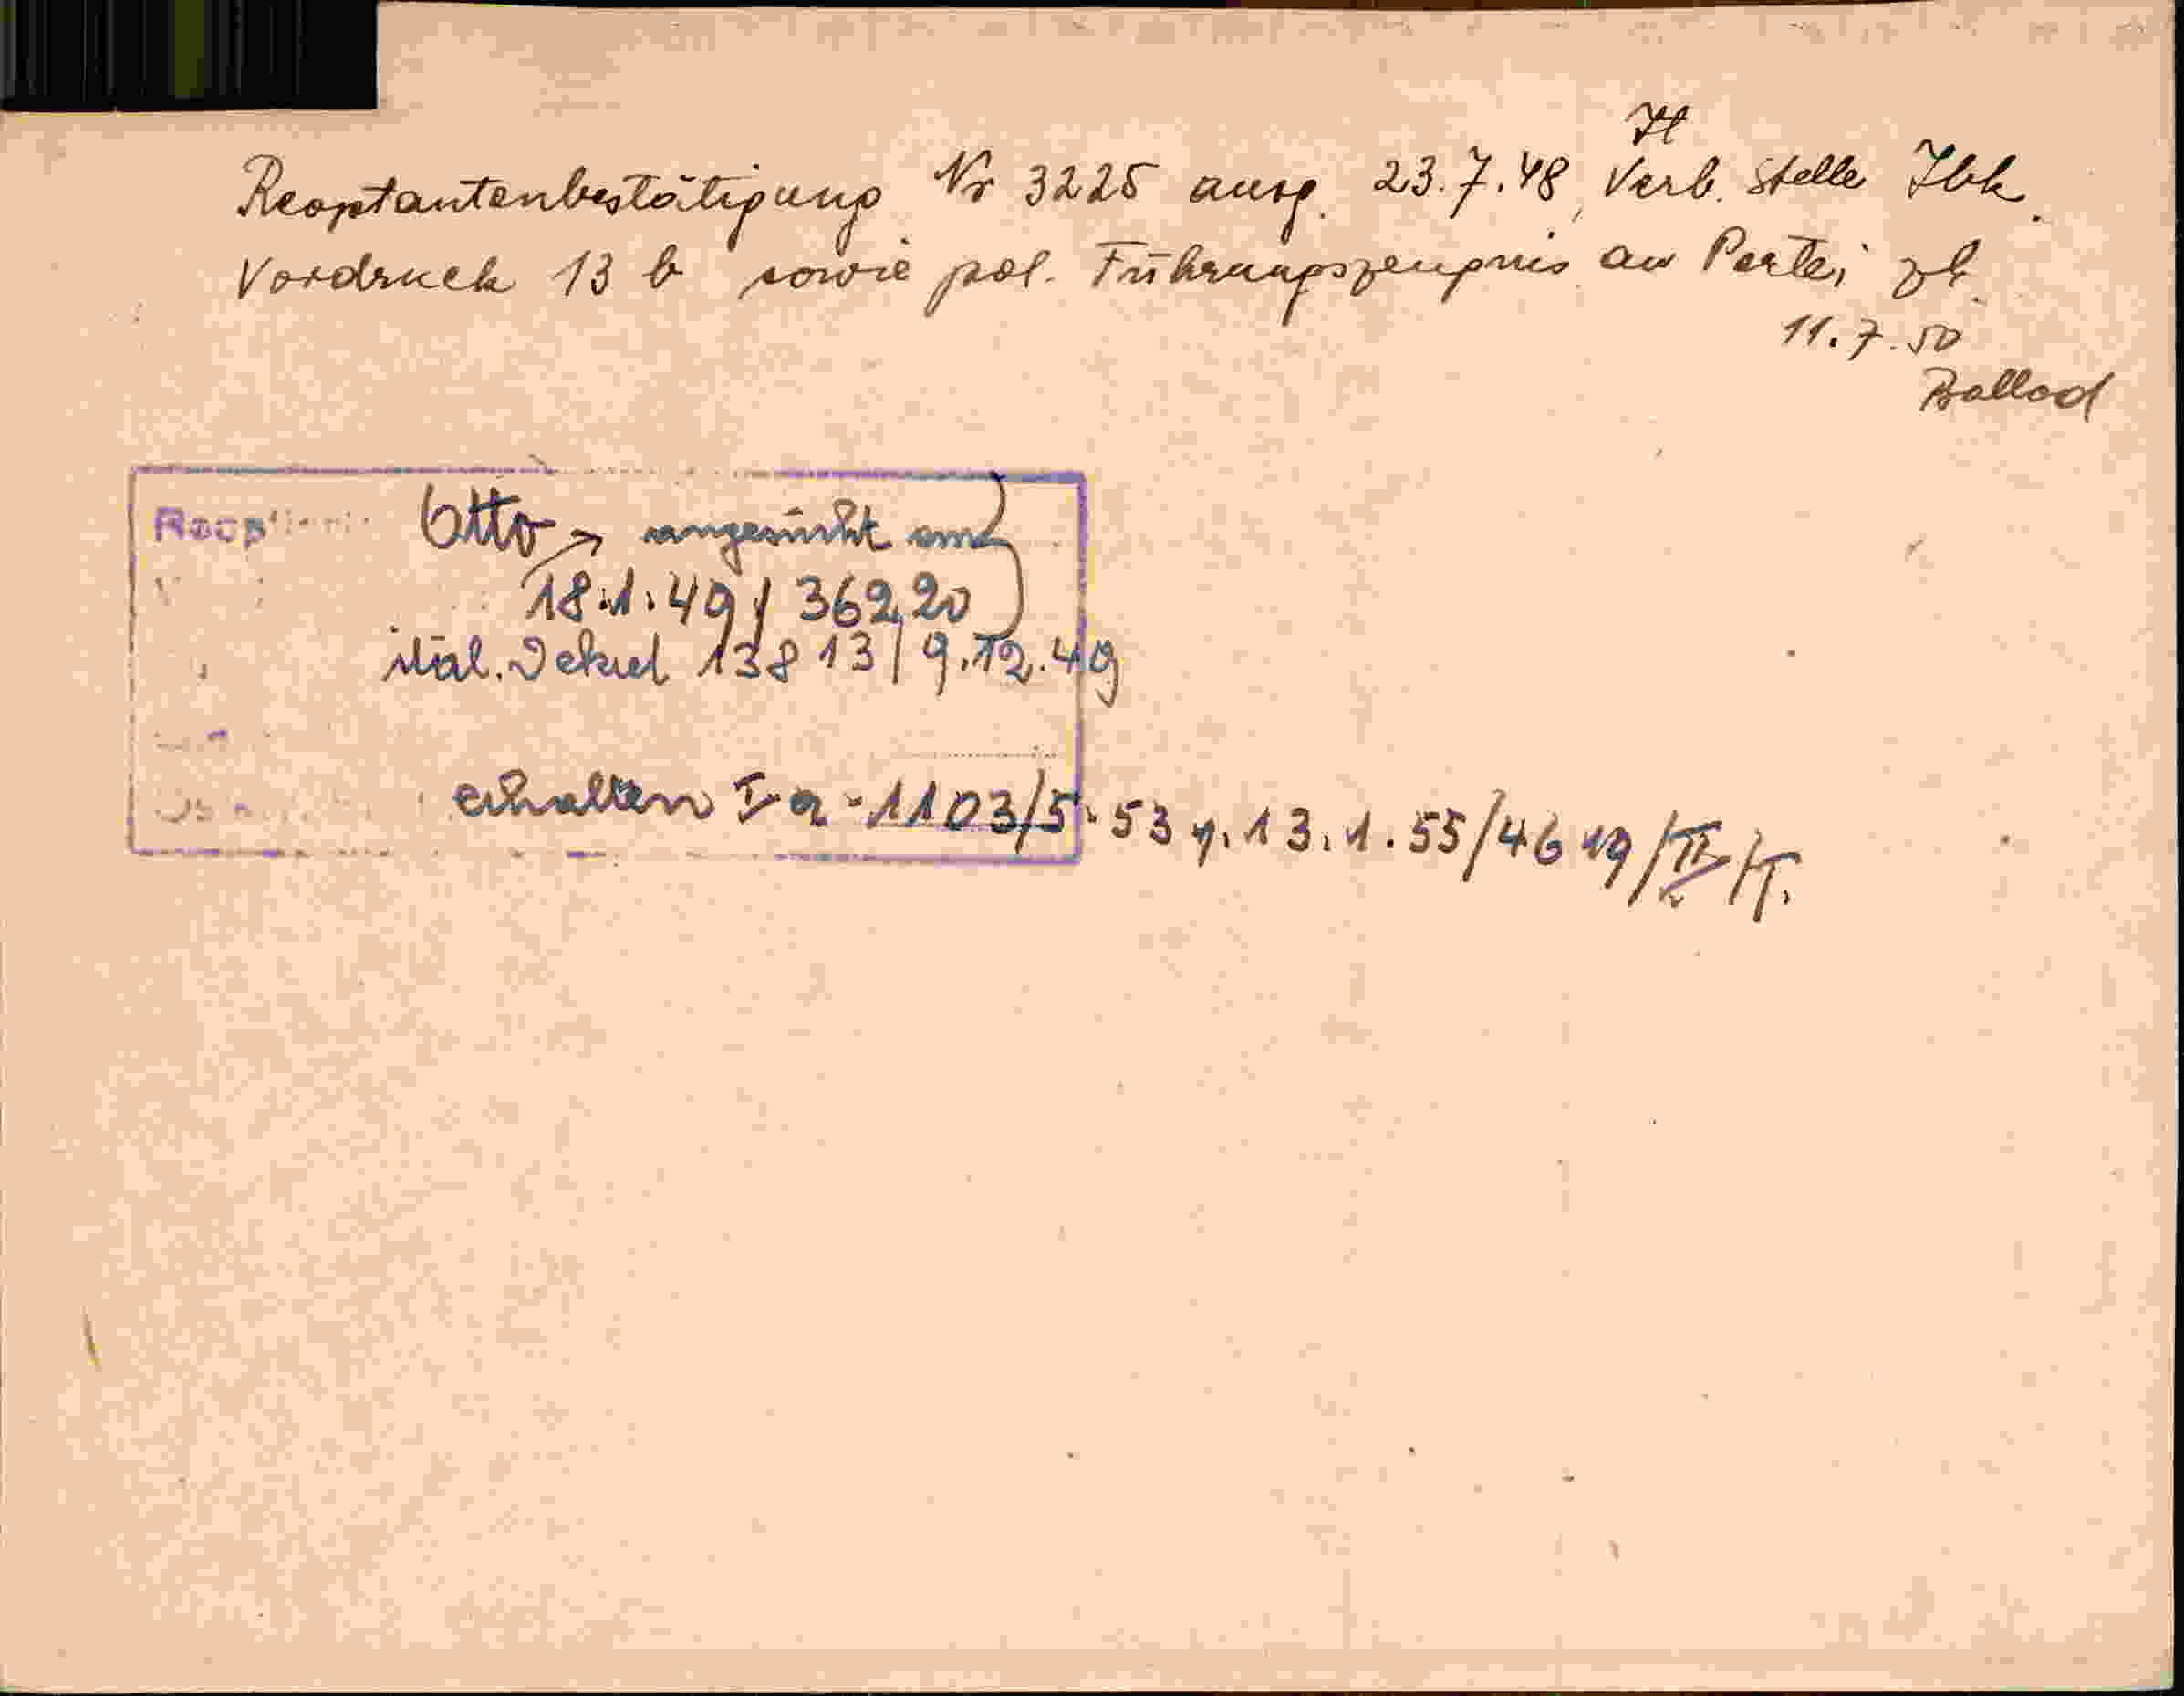 It
Reoptantenbestätigung Nr 3225 ausg. 23.7.48, Verb. Stelle Ibk.
Vordruck 13 b sowie pol. Führungszeugnis an Partei zk.
11.7.50
Ballod
Otto → angesucht am
18.1.49 / 36220
ital. Dekret 13813 / 9.12.49
erhalten Ia-1103/5.53 v. 13.1.55/4619/II/T.